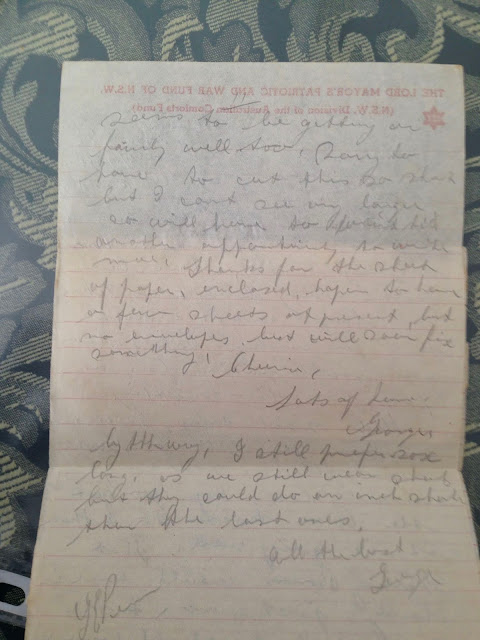 THE LORD MAYOR'S PATRIOTIC AND WAR FUND OF N.S.W.
(N.S.W. Division of the Australian Comforts Fund)
seems to be getting on
fairly well too, Sorry to
have to cut this so short
but I cant see any longer
so will have to
another opportunity to write
more. Thanks for the sheet
of paper, enclosed,
a few sheets at present, but
no envelopes, but will soon fix
something!
Cheerio,
Lots of love
George
by the way, I still prefer sox
long, as we still wear shorts
but they could do an inch shorter
than the last ones,
All the best
George